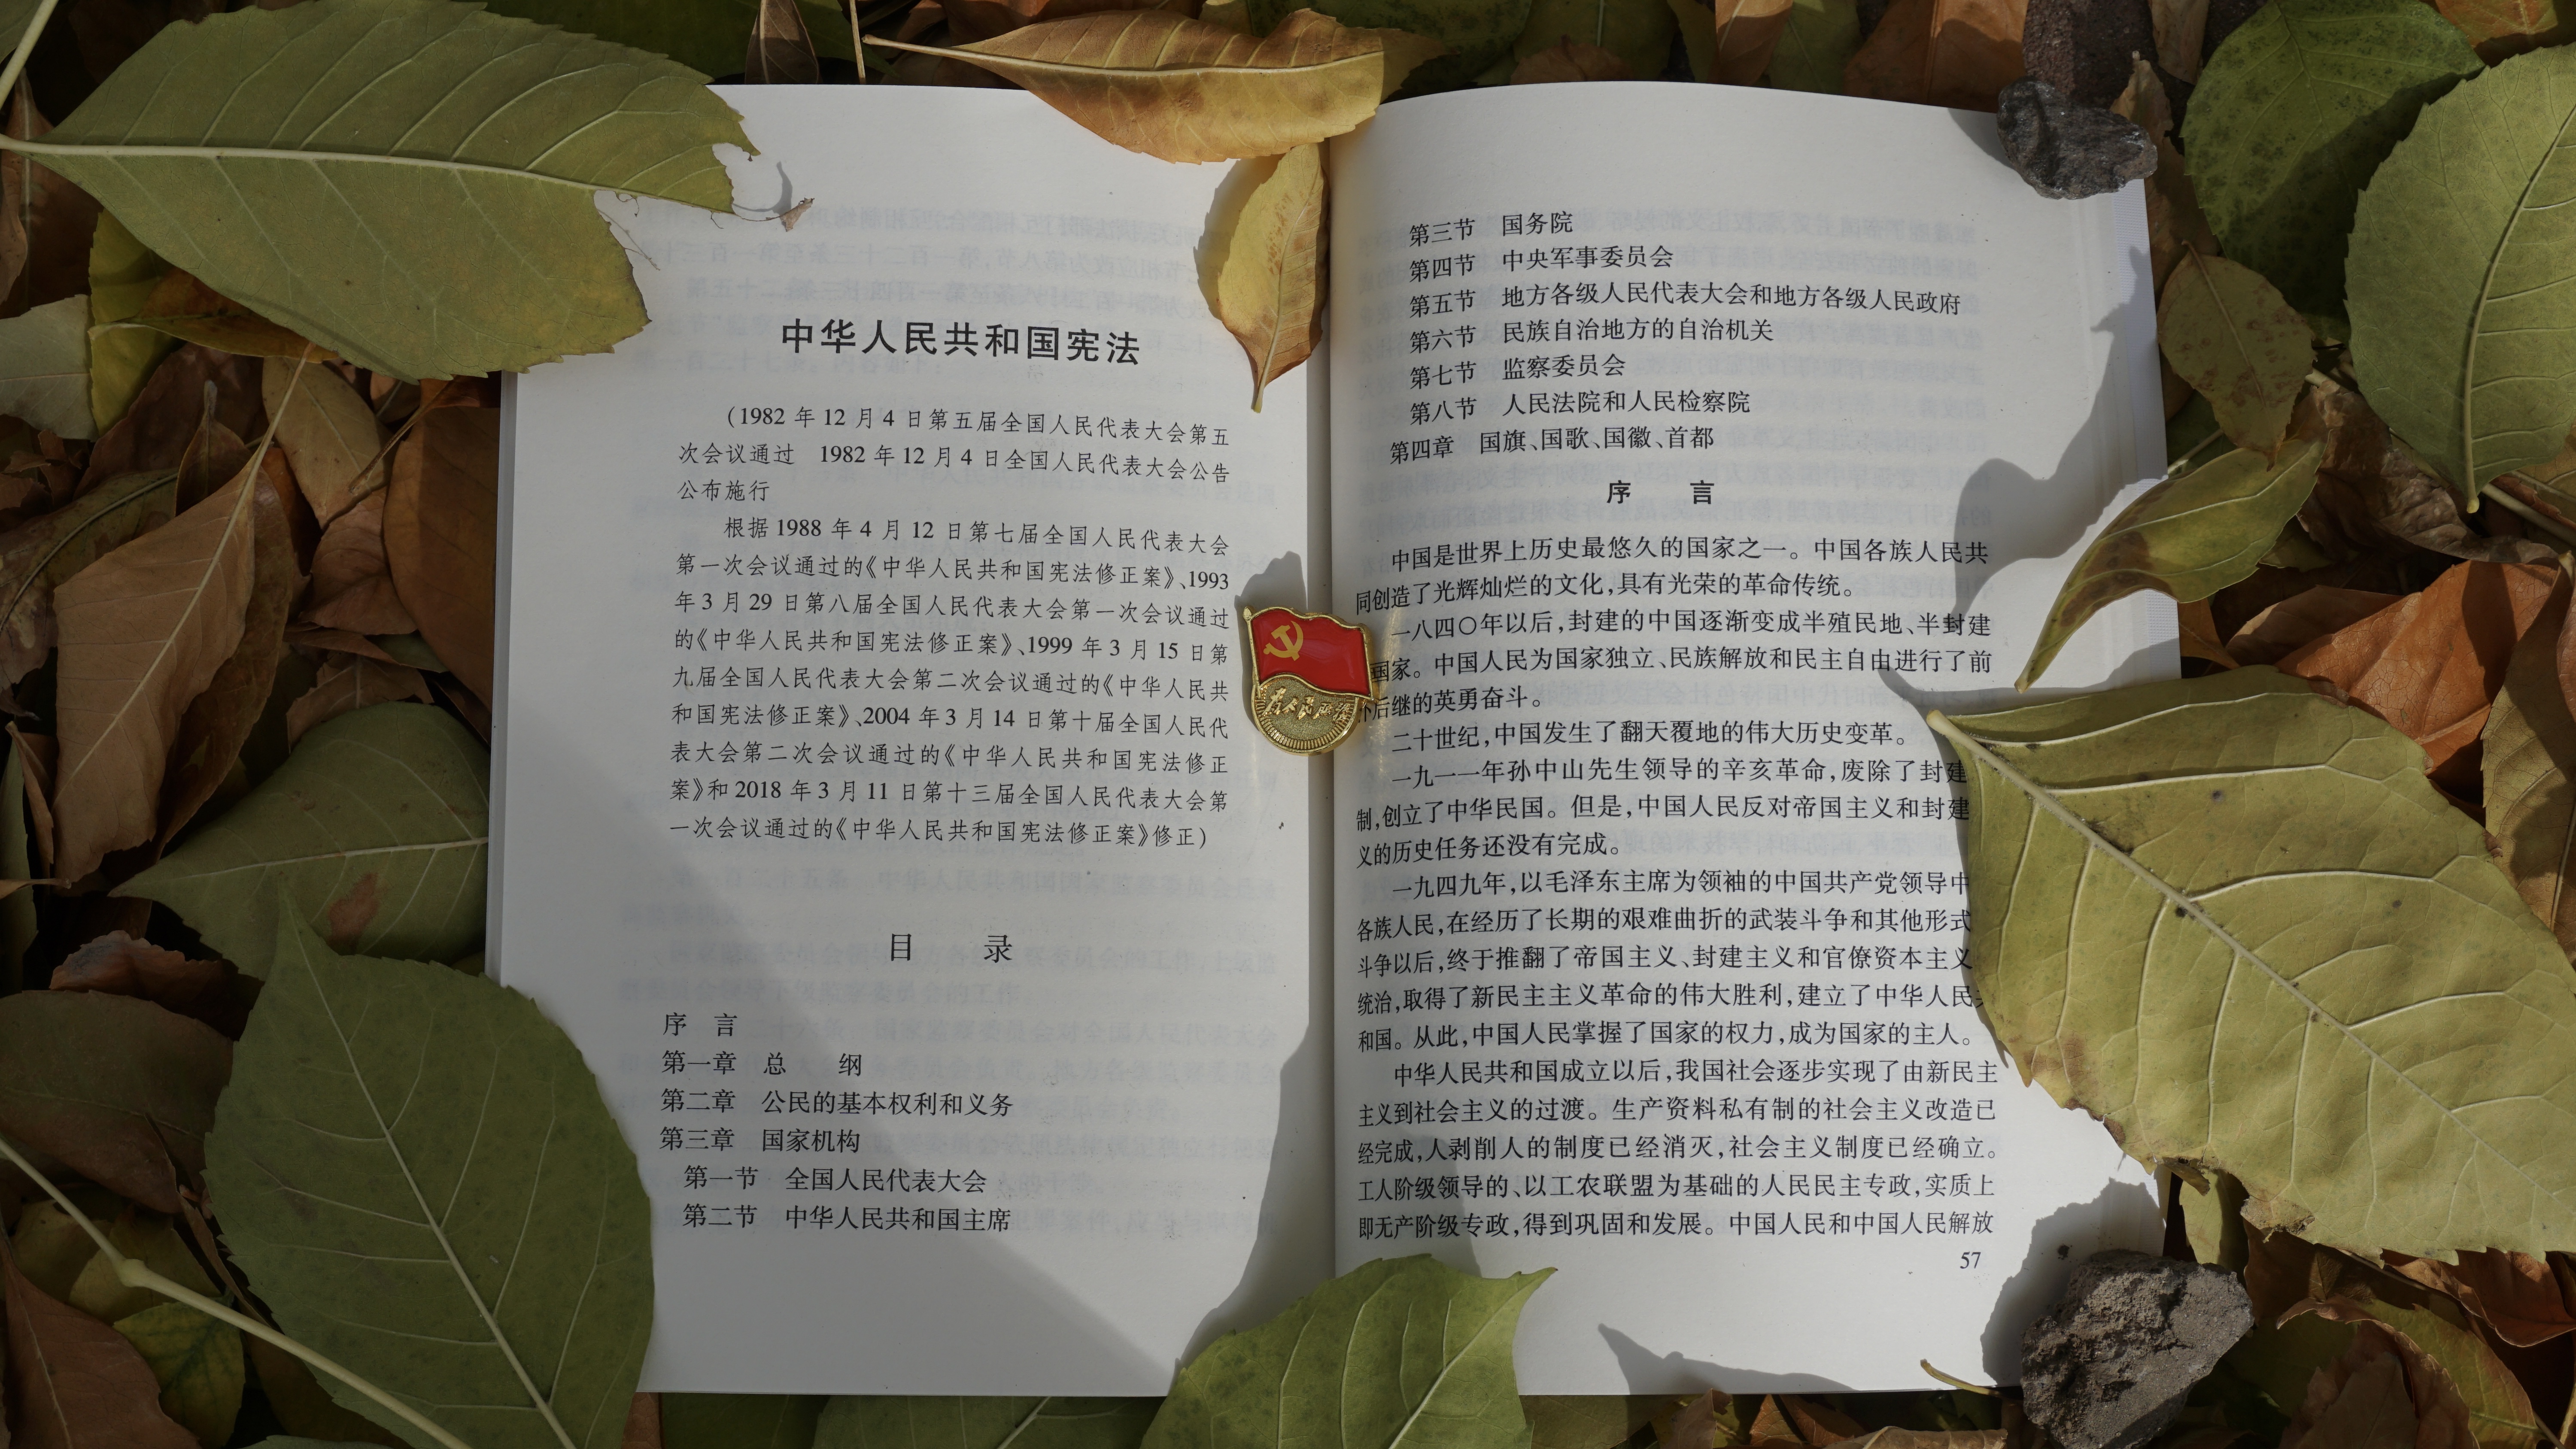 中华人民共和国宪法
（1982 年 12 月 4 日第五届全国人民代表大会第五
次会议通过　1982 年 12 月 4 日全国人民代表大会公告
公布施行
根据 1988 年 4 月 12 日第七届全国人民代表大会
第一次会议通过的《中华人民共和国宪法修正案》、1993
年 3 月 29 日第八届全国人民代表大会第一次会议通过
的《中华人民共和国宪法修正案》、1999 年 3 月 15 日第
九届全国人民代表大会第二次会议通过的《中华人民共
和国宪法修正案》、2004 年 3 月 14 日第十届全国人民代
表大会第二次会议通过的《中华人民共和国宪法修正
案》和 2018 年 3 月 11 日第十三届全国人民代表大会第
一次会议通过的《中华人民共和国宪法修正案》修正）
目　录
序　言
第一章　总　纲
第二章　公民的基本权利和义务
第三章　国家机构
第一节　全国人民代表大会
第二节　中华人民共和国主席
为人民服务
第三节　国务院
第四节　中央军事委员会
第五节　地方各级人民代表大会和地方各级人民政府
第六节　民族自治地方的自治机关
第七节　监察委员会
第八节　人民法院和人民检察院
第四章　国旗、国歌、国徽、首都
序　言
中国是世界上历史最悠久的国家之一。中国各族人民共
同创造了光辉灿烂的文化，具有光荣的革命传统。
一八四〇年以后，封建的中国逐渐变成半殖民地、半封建
国家。中国人民为国家独立、民族解放和民主自由进行了前
仆后继的英勇奋斗。
二十世纪，中国发生了翻天覆地的伟大历史变革。
一九一一年孙中山先生领导的辛亥革命，废除了封建
制，创立了中华民国。但是，中国人民反对帝国主义和封建
义的历史任务还没有完成。
一九四九年，以毛泽东主席为领袖的中国共产党领导中
各族人民，在经历了长期的艰难曲折的武装斗争和其他形式
斗争以后，终于推翻了帝国主义、封建主义和官僚资本主义
统治，取得了新民主主义革命的伟大胜利，建立了中华人民共
和国。从此，中国人民掌握了国家的权力，成为国家的主人。
中华人民共和国成立以后，我国社会逐步实现了由新民主
主义到社会主义的过渡。生产资料私有制的社会主义改造已
经完成，人剥削人的制度已经消灭，社会主义制度已经确立。
工人阶级领导的、以工农联盟为基础的人民民主专政，实质上
即无产阶级专政，得到巩固和发展。中国人民和中国人民解放
57